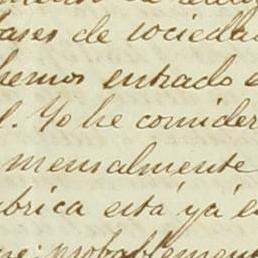 bases de sociedad
hemos entrado e
l. Yo he consider
mensualmente
ábrica está yá e
ue: probablement